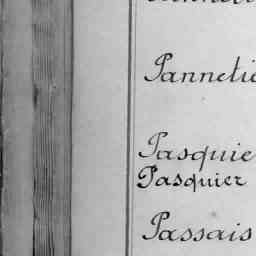 Panneti
Pasquie
Pasquier
Passais